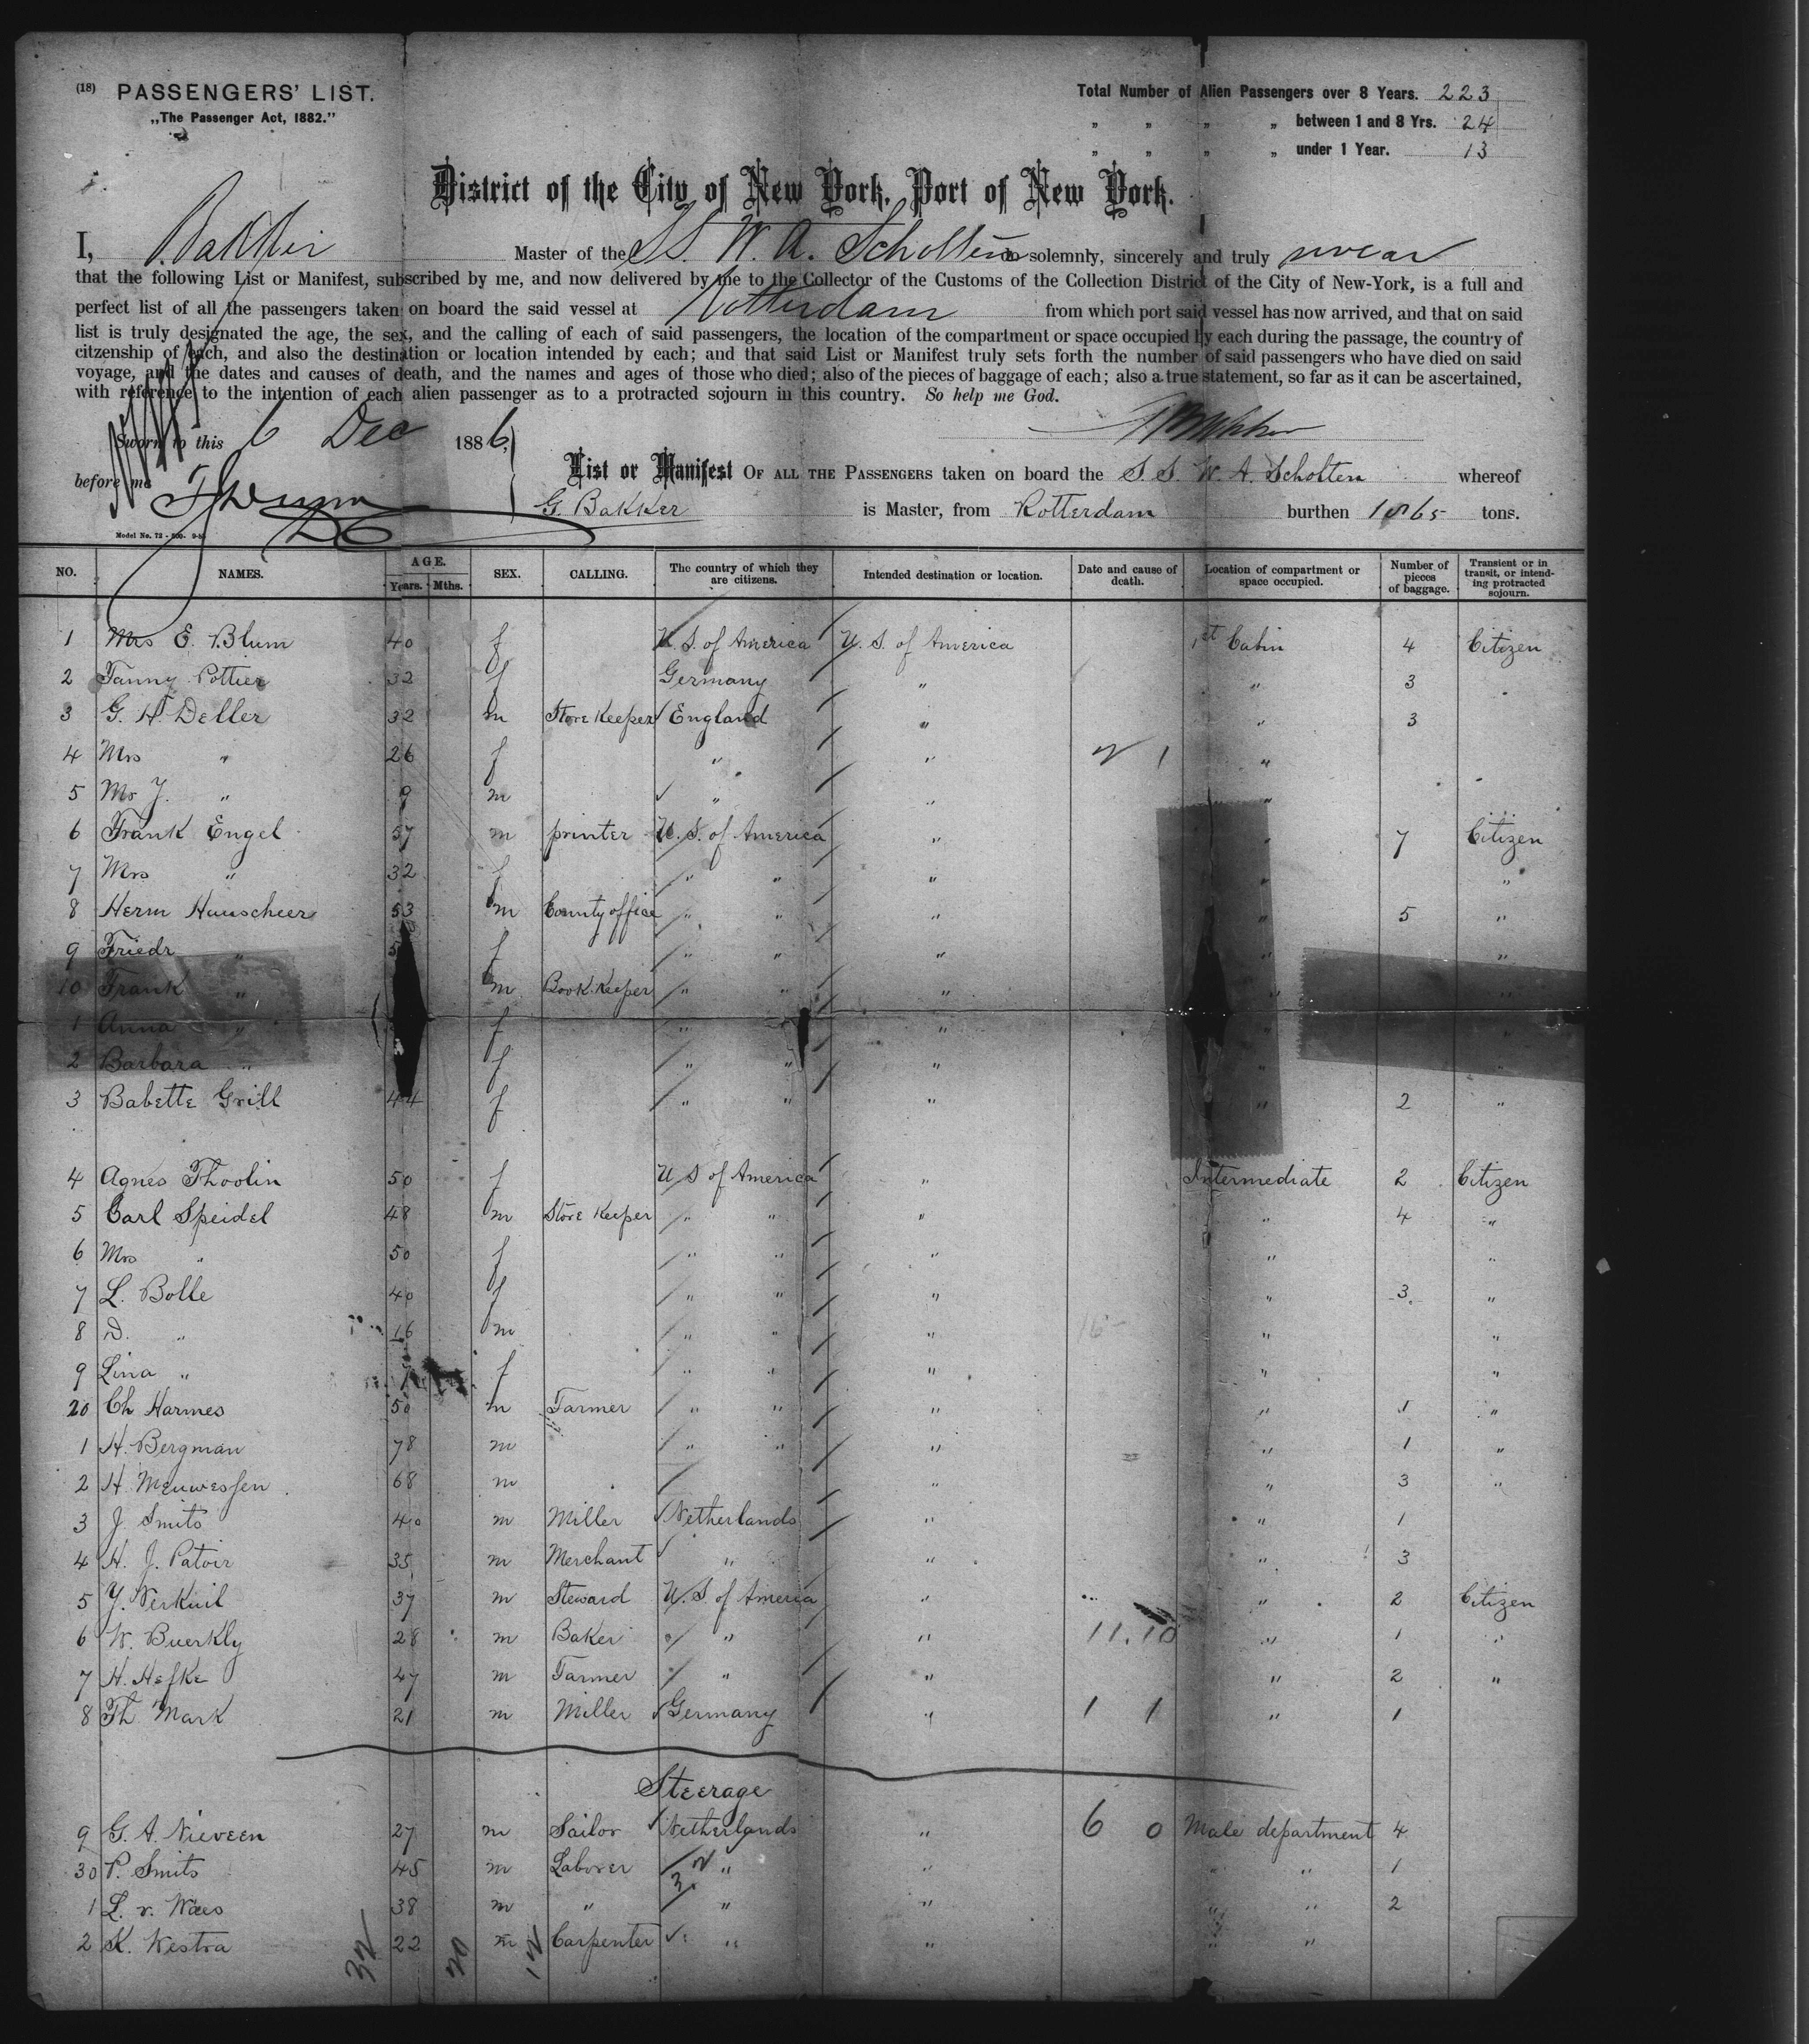 (18) PASSENGERS' LIST.
„The Passenger Act, 1882."
Total Number of Alien Passengers over 8 Years. 223
„ „ „ „ between 1 and 8 Yrs. 24
„ „ „ „ under 1 Year. 13
District of the City of New York, Port of New York.
I, Bakker Master of the SS. W. A. Scholten do solemnly, sincerely and truly swear
that the following List or Manifest, subscribed by me, and now delivered by me to the Collector of the Customs of the Collection District of the City of New-York, is a full and
perfect list of all the passengers taken on board the said vessel at Rotterdam from which port said vessel has now arrived, and that on said
list is truly designated the age, the sex, and the calling of each of said passengers, the location of the compartment or space occupied by each during the passage, the country of
citzenship of each, and also the destination or location intended by each; and that said List or Manifest truly sets forth the number of said passengers who have died on said
voyage, and the dates and causes of death, and the names and ages of those who died; also of the pieces of baggage of each; also a true statement, so far as it can be ascertained,
with reference to the intention of each alien passenger as to a protracted sojourn in this country. So help me God.
Sworn to this 6 Dec 1886,
before me
List or Manifest OF ALL THE PASSENGERS taken on board the S.S. W. A. Scholten whereof
G. Bakker is Master, from Rotterdam burthen 1865 tons.
Model No. 72
NO. NAMES. AGE. Years. Mths. SEX. CALLING. The country of which they are citizens. Intended destination or location. Date and cause of death. Location of compartment or space occupied. Number of pieces of baggage. Transient or in transit, or intending protracted sojourn.
1 Mrs E. Blum 40 f U. S. of America U. S. of America 1st Cabin 4 Citizen
2 Fanny Pottier 32 f Germany " " 3
3 G. H. Deller 32 m Store Keeper England " " 3
4 Mrs " 26 f " " 2 1 "
5 Mr J. " 9 m " " "
6 Frank Engel 57 m printer U. S. of America " " 7 Citizen
7 Mrs " 32 f " " " " "
8 Herm Hauscheer 53 m County office " " " " 5 "
9 Friedr " 5 f " " " " "
10 Frank " m Book Keeper " " " " "
1 Anna " f " " " " "
2 Barbara " f " " " " "
3 Babette Grill 44 f " " " " 2 "
4 Agnes Thoolin 50 f U S of America " Intermediate 2 Citizen
5 Carl Speidel 48 m Store Keeper " " " " 4 "
6 Mrs " 50 f " " " " "
7 L. Bolle 40 f " " " " 3 "
8 D. " 16 m " " " 16 " "
9 Lina " 7 f " " " " "
20 Ch Harmes 50 m Farmer " " " " 1 "
1 H. Bergman 78 m " " " " 1 "
2 H. Meuwessen 68 m " " 3 "
3 J. Smits 40 m Miller Netherlands " " 1
4 H. J. Patoir 35 m Merchant " " " 3
5 Y. Verkuil 37 m Steward U. S. of America " " 2 Citizen
6 W. Buerkly 28 m Baker " " 11.10 " 1 "
7 H. Hefke 47 m Farmer " " " 2 "
8 Th Mark 21 m Miller Germany " 1 1 " 1
Steerage
9 G. A. Nieveen 27 m Sailor Netherlands " 6 0 Male department 4
30 P. Smits 45 m Laborer " " " " 1
1 L. v. Waes 38 m " " " " " 2
2 K. Westra 22 m Carpenter " " " "
32 20 12